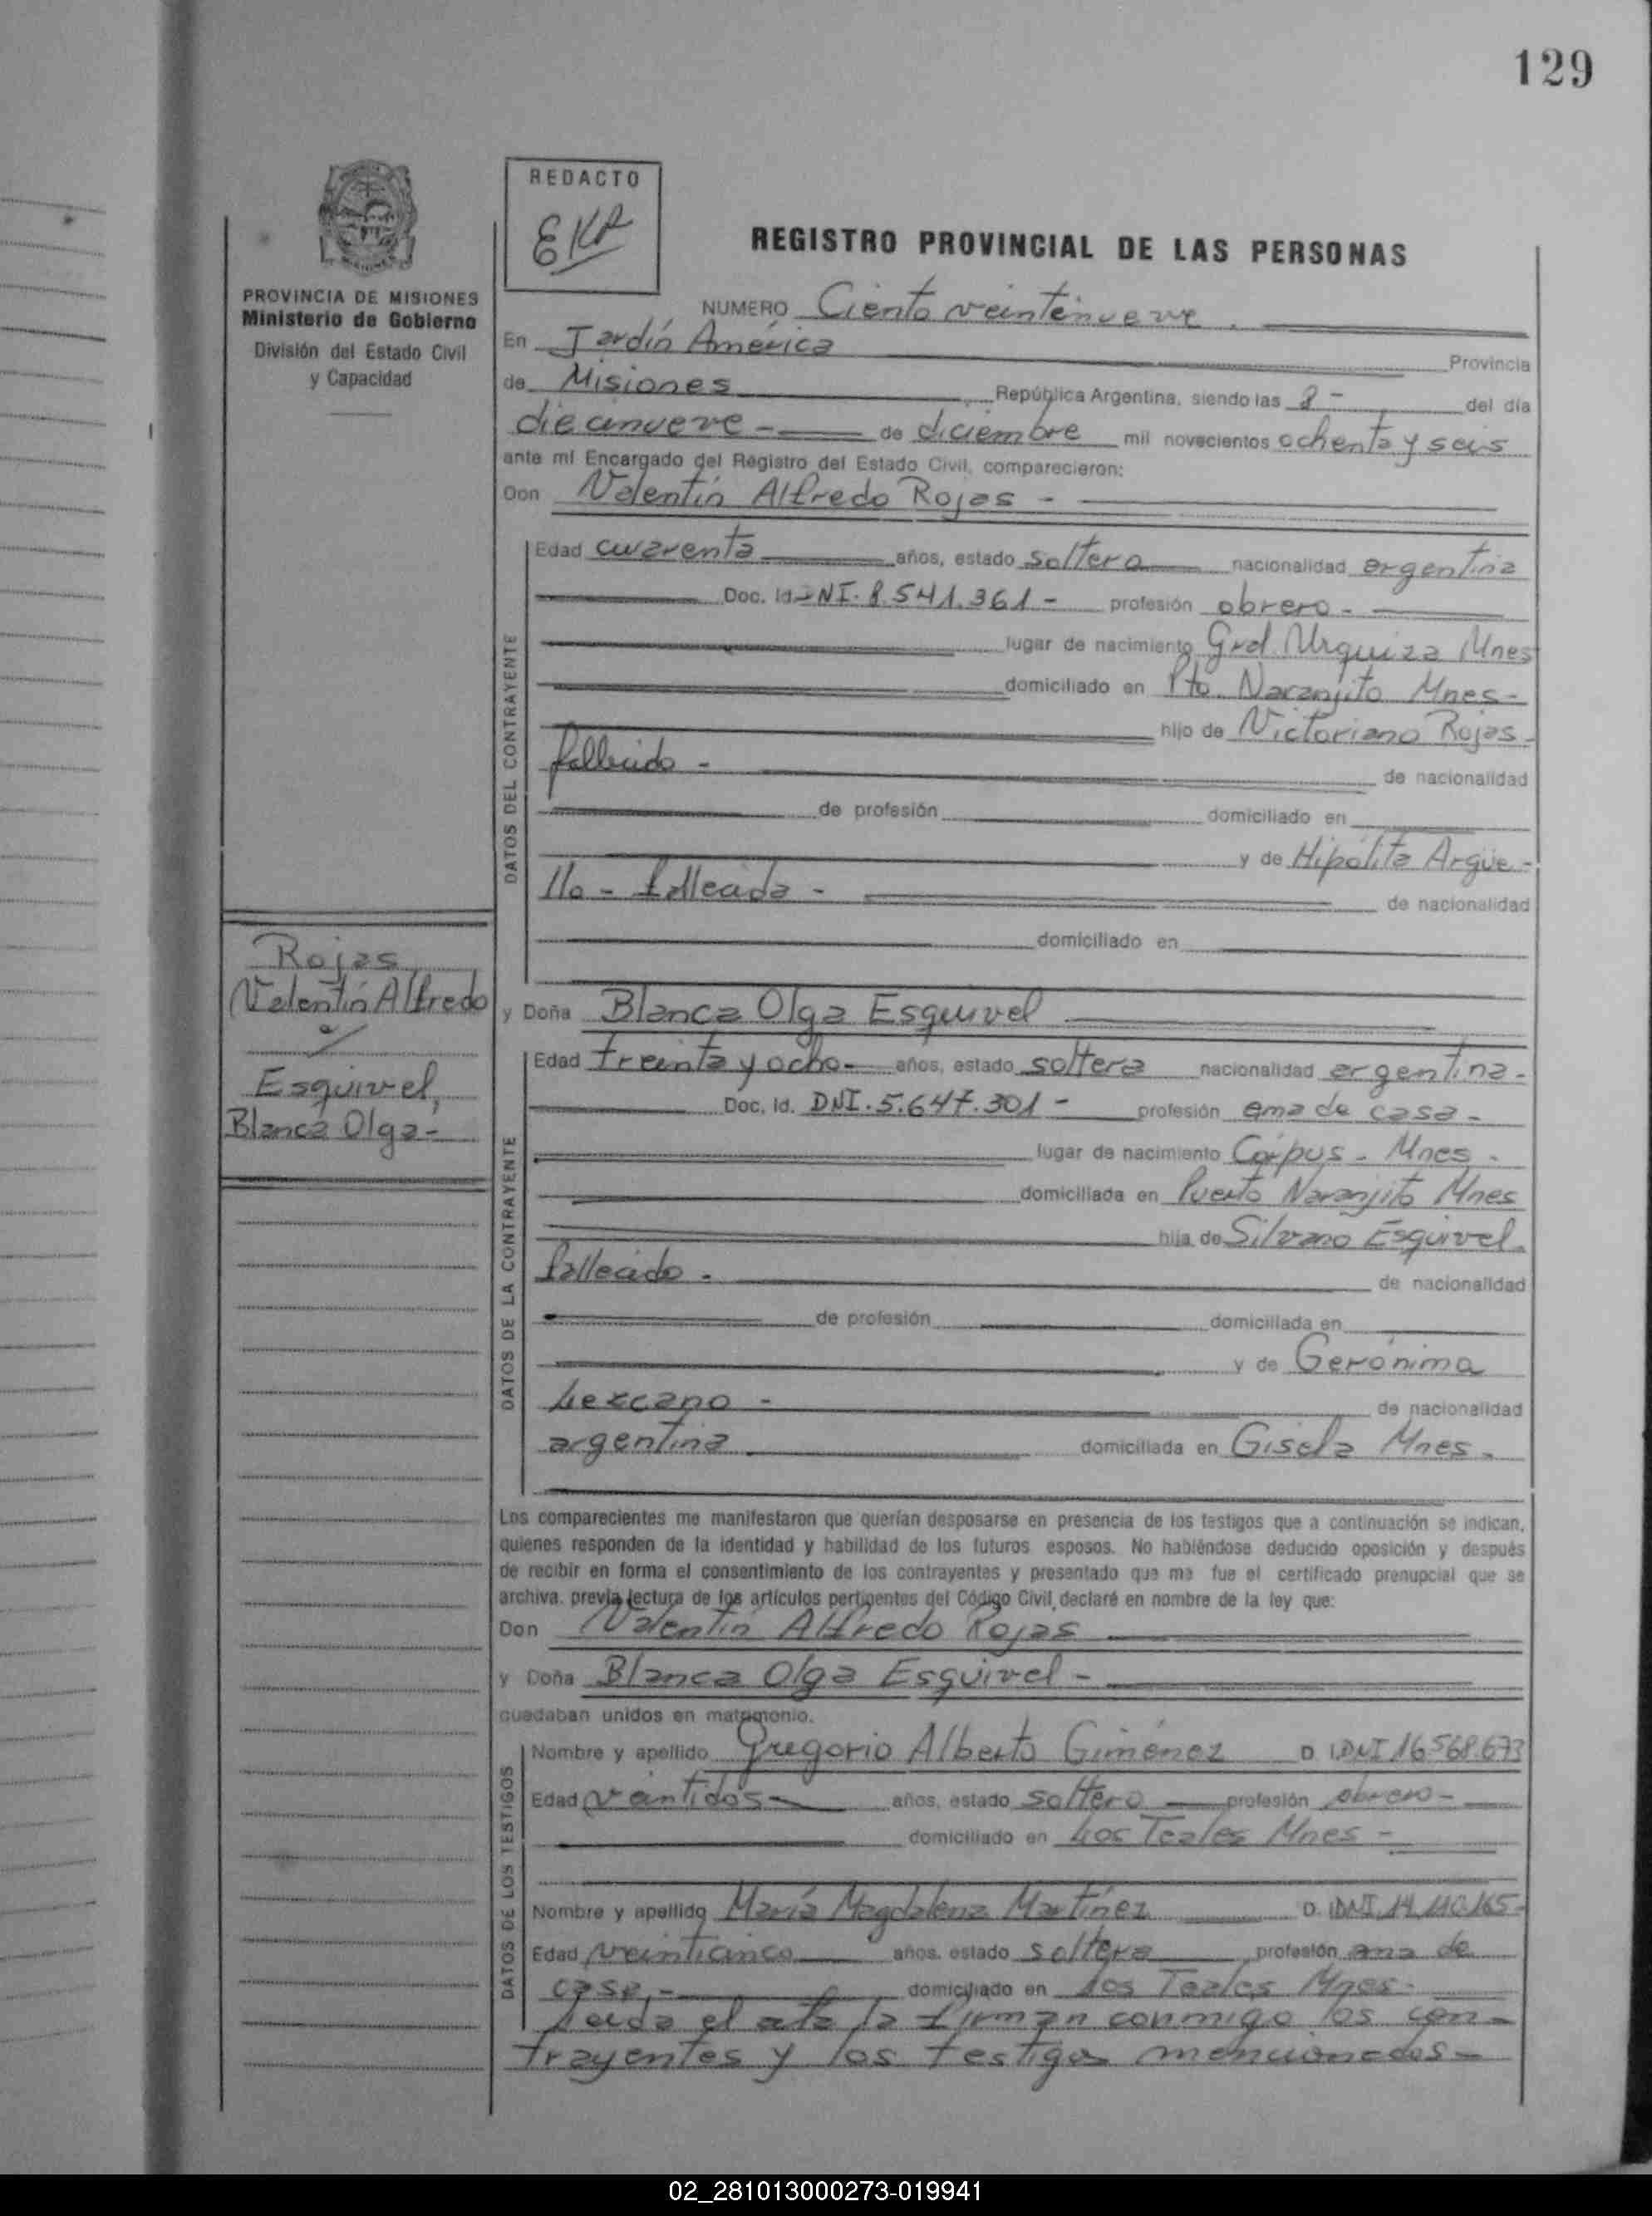 129
REDACTO
EKR
REGISTRO PROVINCIAL DE LAS PERSONAS
PROVINCIA DE MISIONES
Ministerio de Gobierno
División del Estado Civil
y Capacidad
NUMERO Ciento veintinueve.
En Jardín América Provincia
de Misiones República Argentina, siendo las 8 - del día
diecinueve - de diciembre mil novecientos ochenta y seis
ante mí Encargado del Registro del Estado Civil, comparecieron:
Don Valentín Alfredo Rojas -
DATOS DEL CONTRAYENTE
Edad cuarenta años, estado soltero nacionalidad argentina
Doc. Id. DNI. 8.541.361 - profesión obrero -
lugar de nacimiento Gral. Urquiza Mnes
domiciliado en Pto. Naranjito Mnes -
hijo de Victoriano Rojas -
fallecido - de nacionalidad
de profesión domiciliado en
y de Hipólita Argüe -
llo - fallecida - de nacionalidad
domiciliado en
Rojas
Valentín Alfredo
c/
Esquivel,
Blanca Olga -
y Doña Blanca Olga Esquivel
DATOS DE LA CONTRAYENTE
Edad treinta y ocho - años, estado soltera nacionalidad argentina -
Doc. Id. DNI. 5.647.301 - profesión ama de casa -
lugar de nacimiento Corpus - Mnes -
domiciliada en Puerto Naranjito Mnes
hija de Silvano Esquivel.
fallecido - de nacionalidad
de profesión domiciliada en
y de Gerónima
Lezcano - de nacionalidad
argentina domiciliada en Gisela Mnes -
Los comparecientes me manifestaron que querían desposarse en presencia de los testigos que a continuación se indican,
quienes responden de la identidad y habilidad de los futuros esposos. No habiéndose deducido oposición y después
de recibir en forma el consentimiento de los contrayentes y presentado que me fue el certificado prenupcial que se
archiva, previa lectura de los artículos pertinentes del Código Civil, declaré en nombre de la ley que:
Don Valentín Alfredo Rojas
y Doña Blanca Olga Esquivel -
quedaban unidos en matrimonio.
DATOS DE LOS TESTIGOS
Nombre y apellido Gregorio Alberto Giménez D. I. DNI 16.568.673
Edad veintidós - años, estado soltero profesión obrero -
domiciliado en Los Teales Mnes -
Nombre y apellido María Magdalena Martínez D. I. DNI. 14.110.165 -
Edad veinticinco años, estado soltera profesión ama de
casa, - domiciliado en Los Teales Mnes -
Leída el acta la firman conmigo los con -
trayentes y los testigos mencionados -
02_281013000273-019941